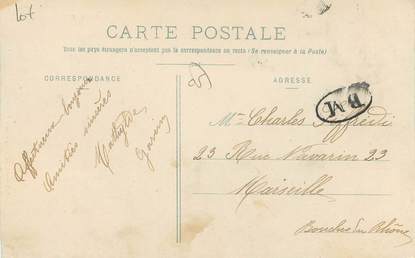 Lot
CARTE POSTALE
Tous les pays étrangers n'acceptent pas la correspondance au recto (Se renseigner à la Poste)
CORRESPONDANCE
ADRESSE
B M
Affectueux bonjour
Amitiés sincères
Mathylde
Mme Charles Affredi
23 Rue Navarin 23
Marseille
Bouches du Rhône